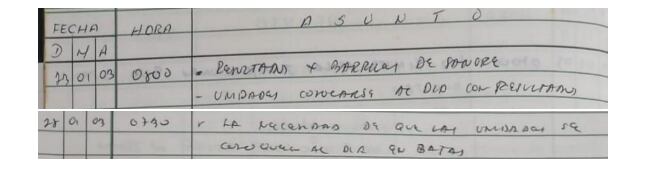 FECHA HORA A S U N T O
D M A
23 01 03 0800 - RESULTADOS X BARRILES DE SANGRE
- UNIDADES COLOCARSE AL DIA CON RESULTADOS
28 01 03 0730 - LA NECESIDAD DE QUE LAS UNIDADES SE
COLOQUEN AL DIA EN BAJAS